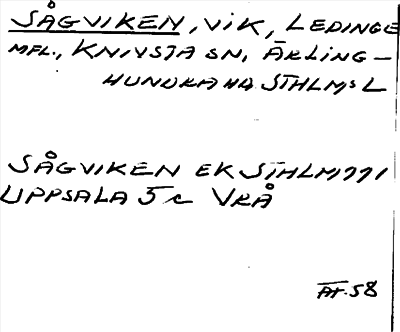 SÅGVIKEN, VIK, LEDINGE
MFL., KNIVSTA SN, ÄRLING-
HUNDRA HD. STHLMS L
SÅGVIKEN EK STHLM 771
UPPSALA 5 c VRÅ
ÄF. 58